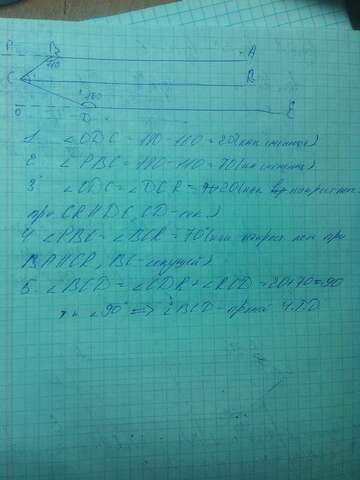 P B A
110
C R
160
O D E
1. ∠ODC = 180-160=20(как смежные)
2. ∠PBC = 180-110=70(как смежные)
3 ∠ODC=∠DCR = 20(как накрест леж
при CR||DE, CD-сек.)
4. ∠PBC = ∠BCR = 70°(как накрест леж при
BP||CR, BC-секущей)
5. ∠BCD = ∠CDR + ∠RCD = 20+70=90
т.к ∠90° => ∠BCD-прямой Ч.Т.Д